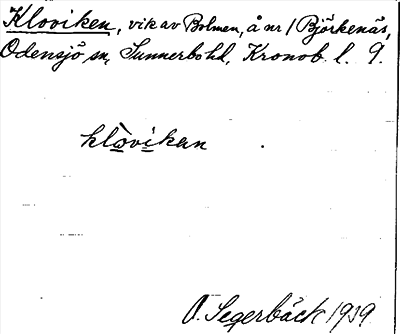 Kloviken, vik av Bolmen, å nr 1 Björkenäs,
Odensjö sn, Sunnerbo hd, Kronob. l. 9.
klòvikan
O. Segerbäck 1919